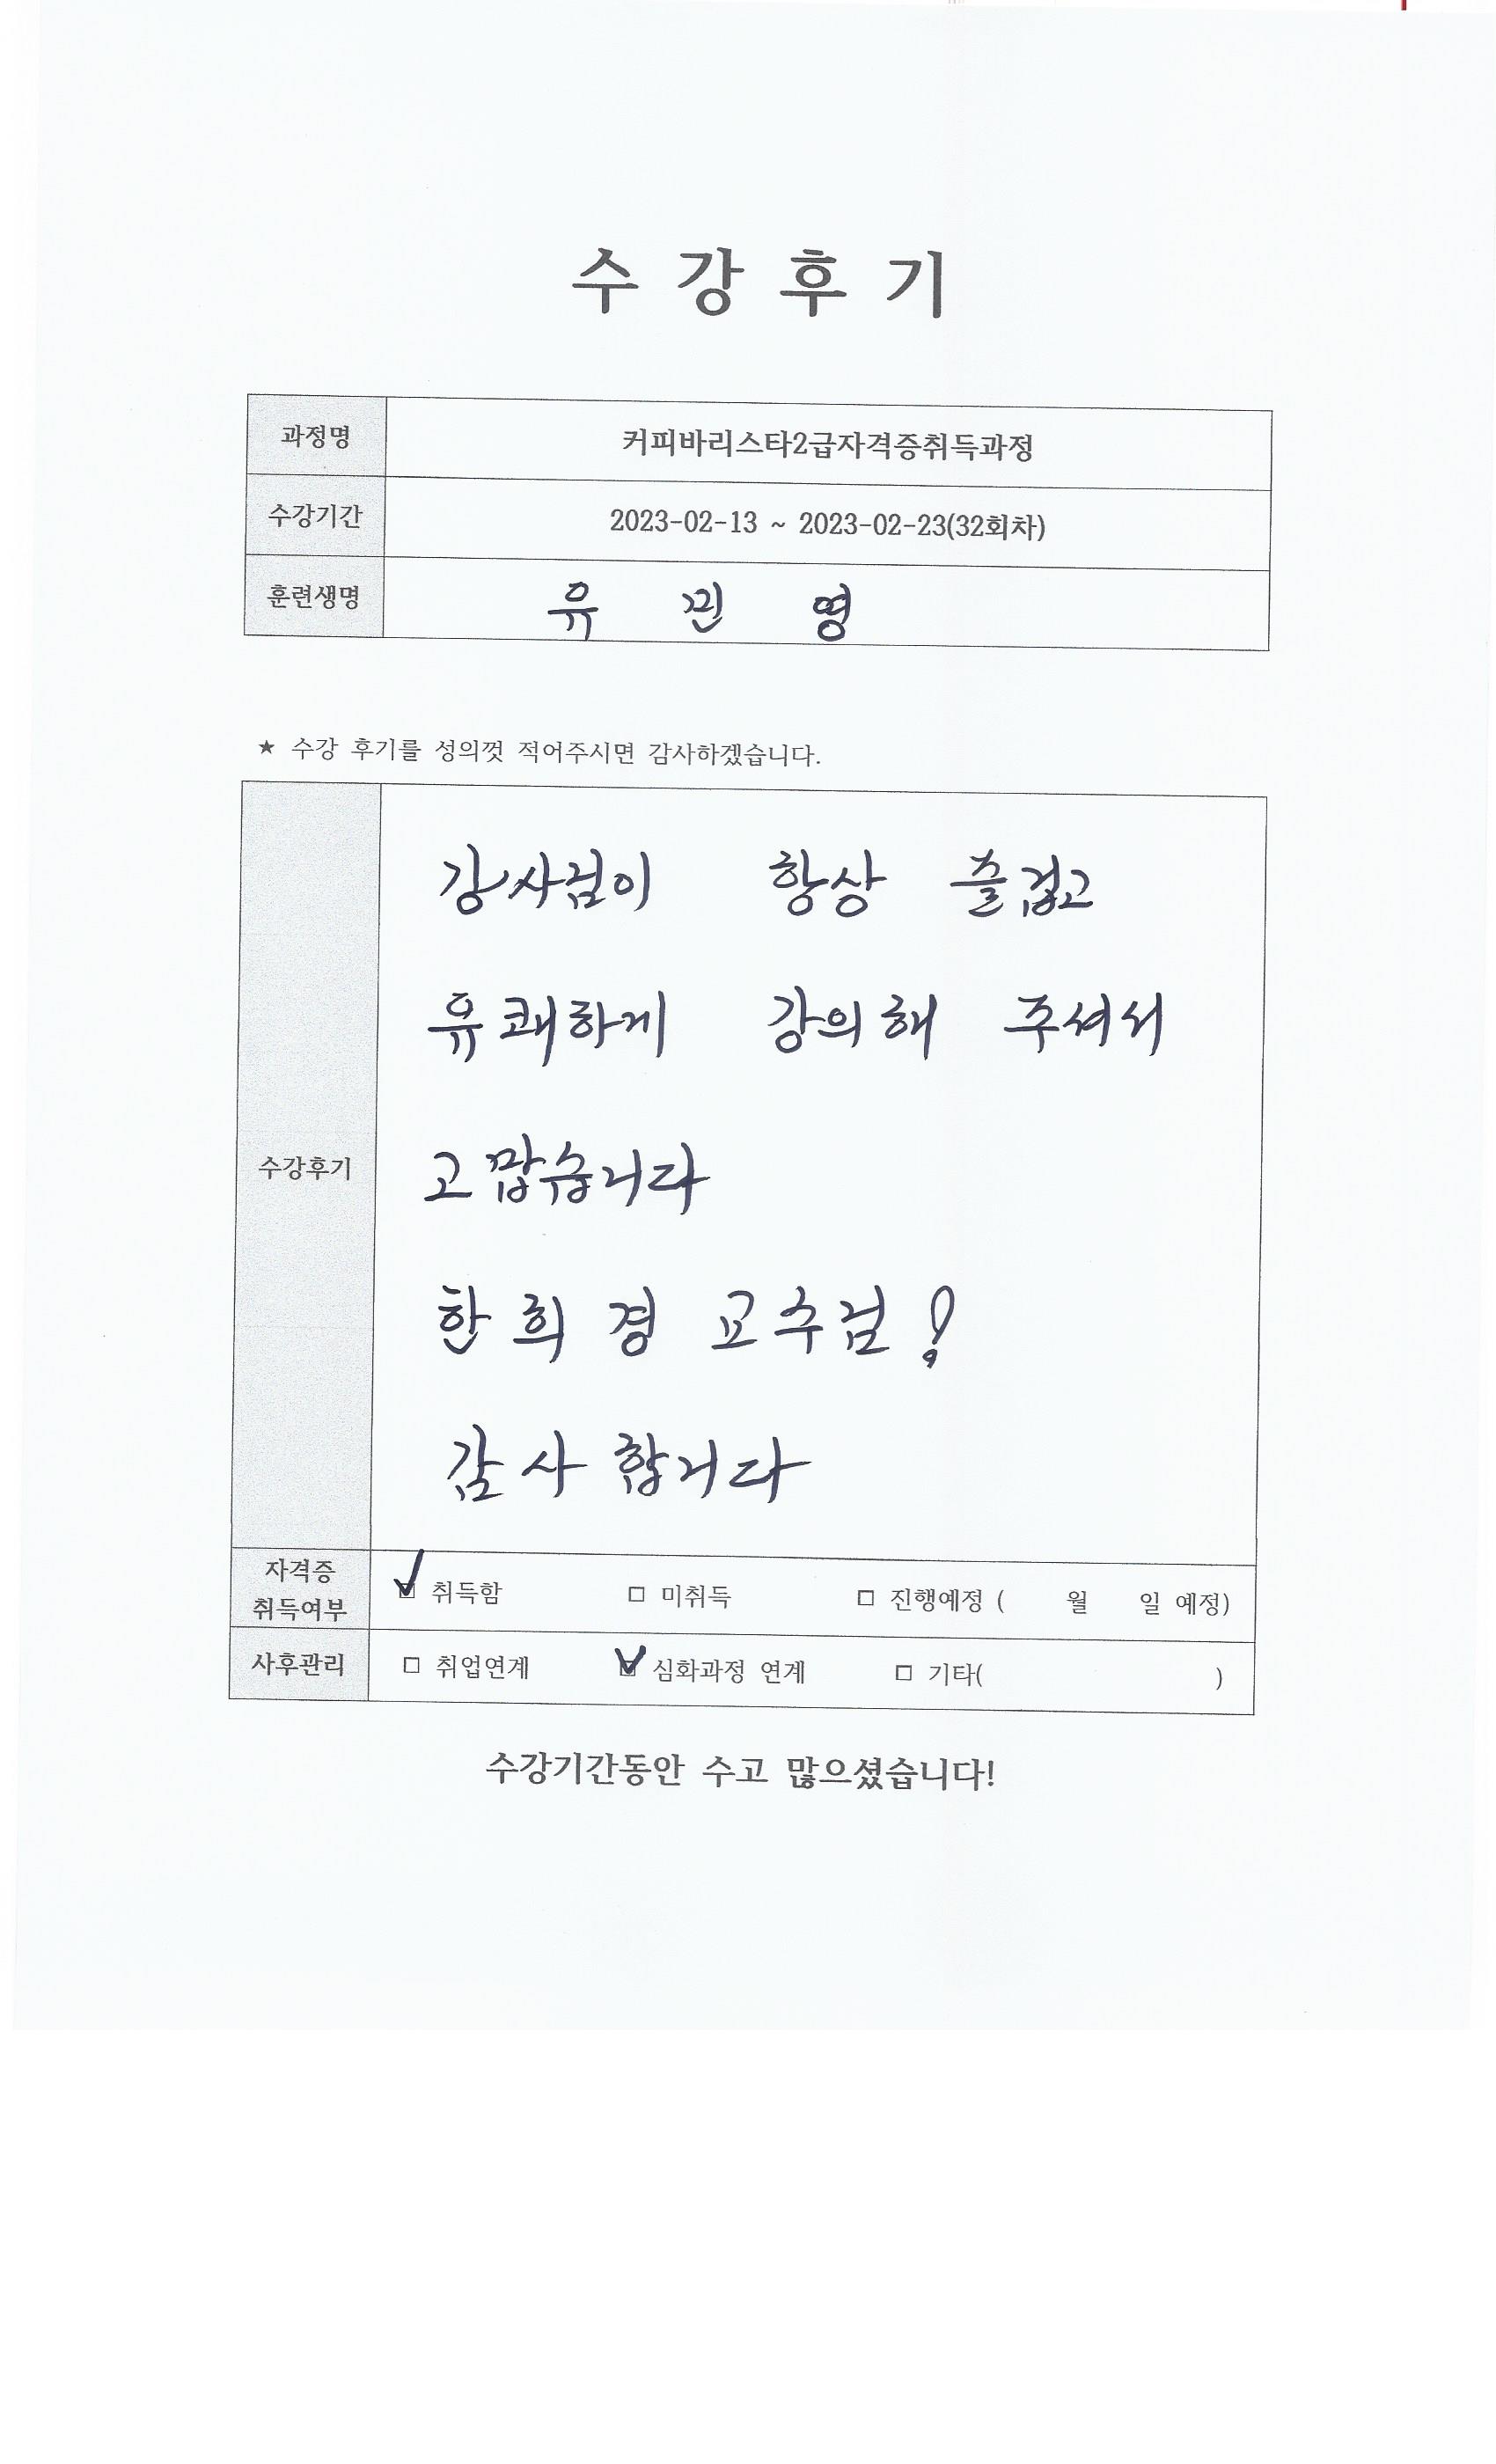 수 강 후 기
과정명 커피바리스타2급자격증취득과정
수강기간 2023-02-13 ~ 2023-02-23(32회차)
훈련생명 유 민 영
★ 수강 후기를 성의껏 적어주시면 감사하겠습니다.
강사님이 항상 즐겁고
유쾌하게 강의해 주셔서
수강후기 고맙습니다
한 희 경 교수님!
감사합니다
자격증
취득여부 ☑ 취득함 □ 미취득 □ 진행예정 ( 월 일 예정)
사후관리 □ 취업연계 ☑ 심화과정 연계 □ 기타( )
수강기간동안 수고 많으셨습니다!